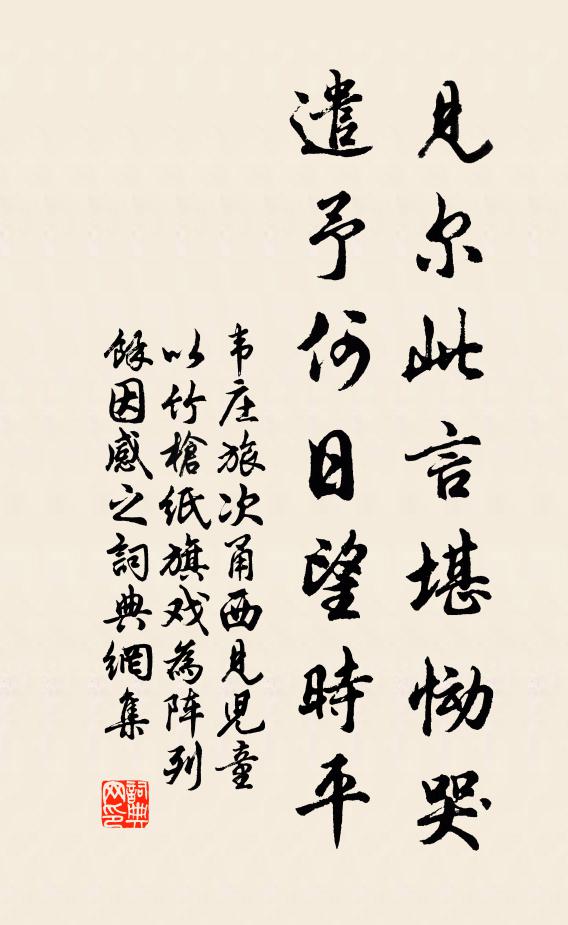 见尔此言堪恸哭
遣予何日望时平
韦庄旅次甬西见児童
以竹槍纸旗戏為阵列
馀因感之詞典網集
詞典
网印